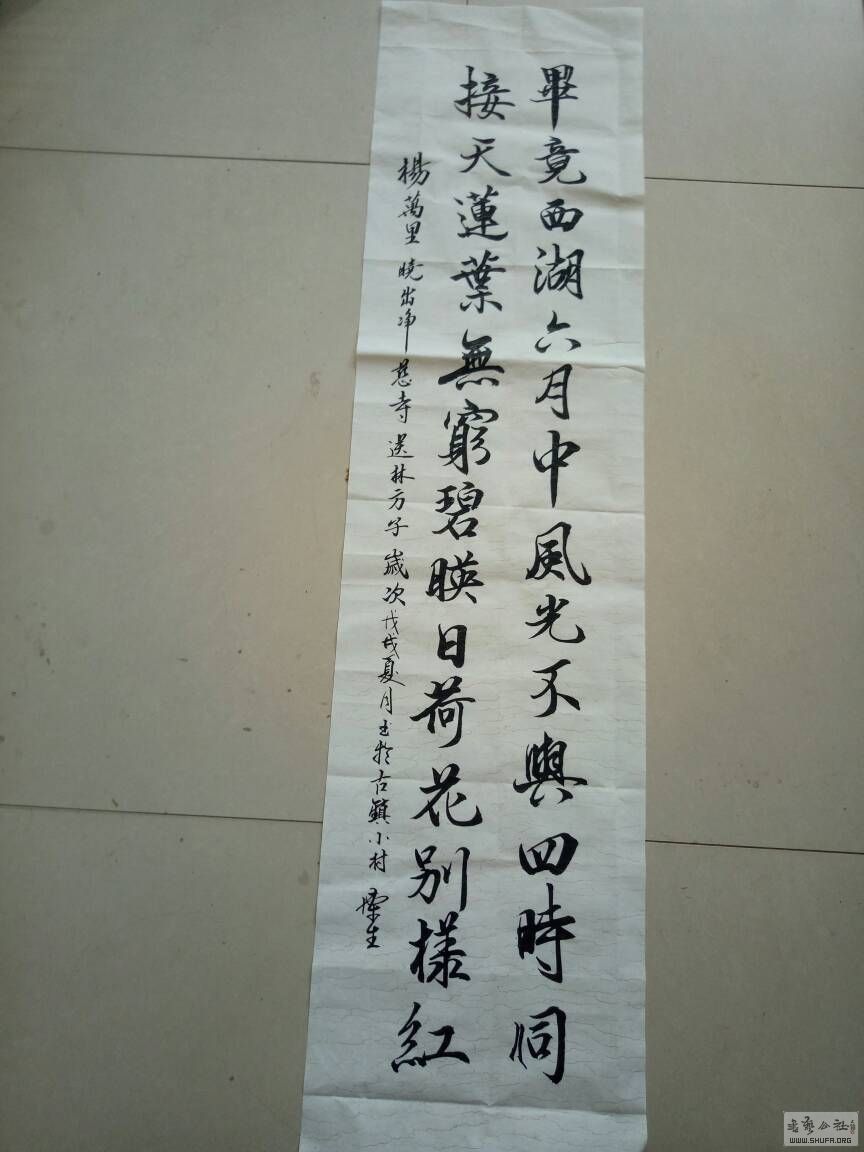 畢竟西湖六月中風光不與四時同
接天蓮葉無窮碧暎日荷花别樣紅
楊萬里 曉出净慈寺送林方子 歲次戊戌夏月书於古鎮小村 生
书艺公社
WWW.SHUFA.ORG